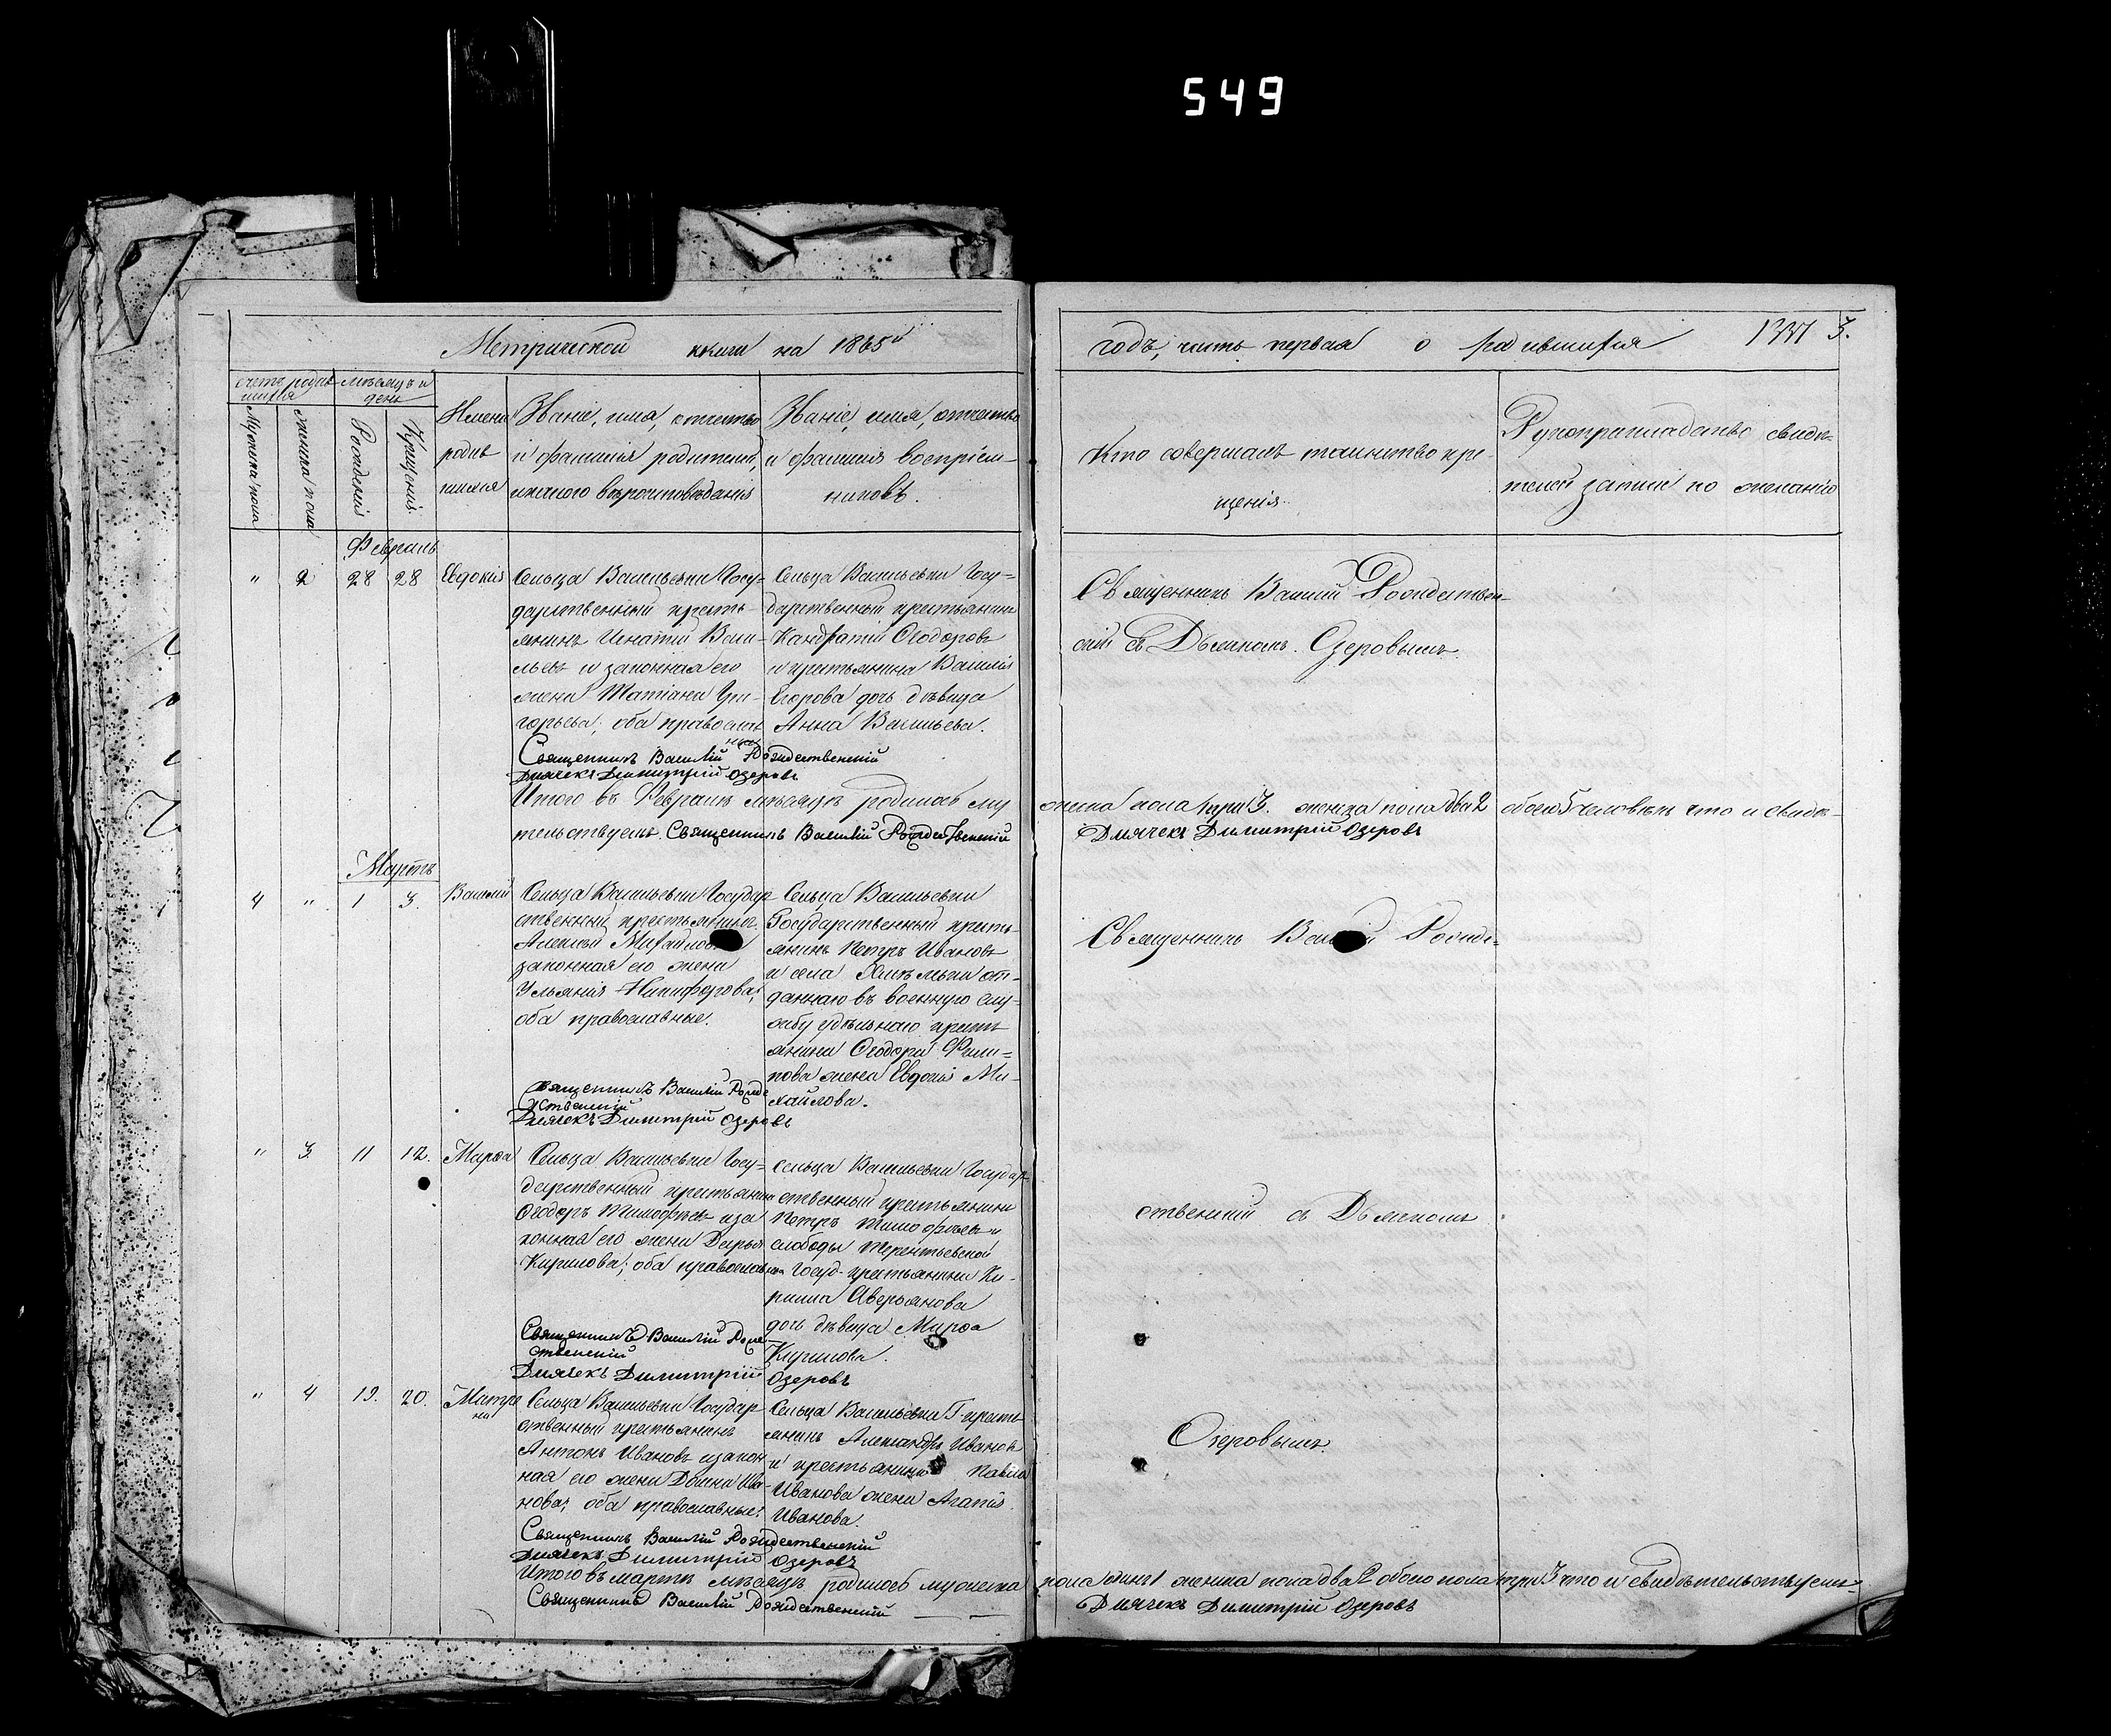 549
Метрической книги на 1865й
годъ, часть первая о родившихся
1337 3.
счетъ родив
шихся
мѣсяцъ и
день
Мужеска пола
Женска пола
Рожденія
Крещенія.
Имена
родив
шихся
Званіе, имя, отчество
и фамилія родителей,
и какого вѣроисповѣданія
Званіе, имя, отчество
и фамилія воспріем-
никовъ.
Кто совершалъ таинство кре-
щенія.
Рукоприкладство свидѣ-
телей записи по желанію
Февраль
" 2 28 28 Евдокія
Сельца Васильевки Госу-
дарственный кресть
янинъ Игнатій Васи-
льевъ и законная его
жена Татіана Гри-
горьева; оба православ
ные
Священникъ Василій Рождественскій
Дьячекъ Димитрій Озеровъ
Сельца Васильевки Госу-
дарственный крестьянинъ
Кандратій Ѳеодоровъ
и крестьянина Василія
Егорова дочь дѣвица
Анна Васильева.
Священникъ Василій Рождествен-
скій съ Дьячкомъ Озеровымъ.
Итого въ Февралѣ мѣсяцѣ родилось му
жеска пола три 3. женска пола два 2 обоего 5 человѣкъ что и свидѣ-
тельствуемъ. Священникъ Василій Рождественскій
Дьячекъ Димитрій Озеровъ
Мартъ
4 " 1 3. Василій
Сельца Васильевки Государ
ственный крестьянинъ
Алексѣй Михайловъ
законная его жена
Ульянія Никифорова;
оба православные.
Священникъ Василій Рожде
ственскій
Дьячекъ Димитрій Озеровъ
Сельца Васильевки
Государственный кресть-
янинъ Петръ Ивановъ
и села
даннаго въ военную слу-
жбу удѣльнаго кресть
янина Ѳеодора Фили-
пова жена Евдокія Ми-
хайлова.
Священникъ Василій Рожде-
" 3 11 12. Марѳа
Сельца Васильевки Госу-
дарственный крестьянинъ
Ѳеодоръ Тимофѣевъ и за
конная его жена Дарья
Кирилова; оба православные
Священникъ Василій Рожде
ственскій
Дьячекъ Димитрій Озеровъ
Сельца Васильевки Государ
ственный крестьянинъ
Петръ Тимофѣевъ и
слободы Терентьевской
Госуд. крестьянина Ки-
рилла Аверьянова
дочь дѣвица Марѳа
Кирилова.
ственскій съ Дьячкомъ
" 4 19. 20. Матре
на
Сельца Васильевки Государ
ственный крестьянинъ
Антонъ Ивановъ и закон
ная его жена Домна Ива-
нова; оба православные.
Священникъ Василій Рождественскій
Дьячекъ Димитрій Озеровъ
Сельца Васильевки Г. кресть
янинъ Александръ Ивановъ
и крестьянина Павла
Иванова жена Агапія
Иванова.
Озеровымъ.
Итого въ мартѣ мѣсяцѣ родилось мужеска
пола одинъ 1 женска пола два 2 обоего пола три 3 что и свидѣтельствуемъ
Священникъ Василій Рождественскій
Дьячекъ Димитрій Озеровъ